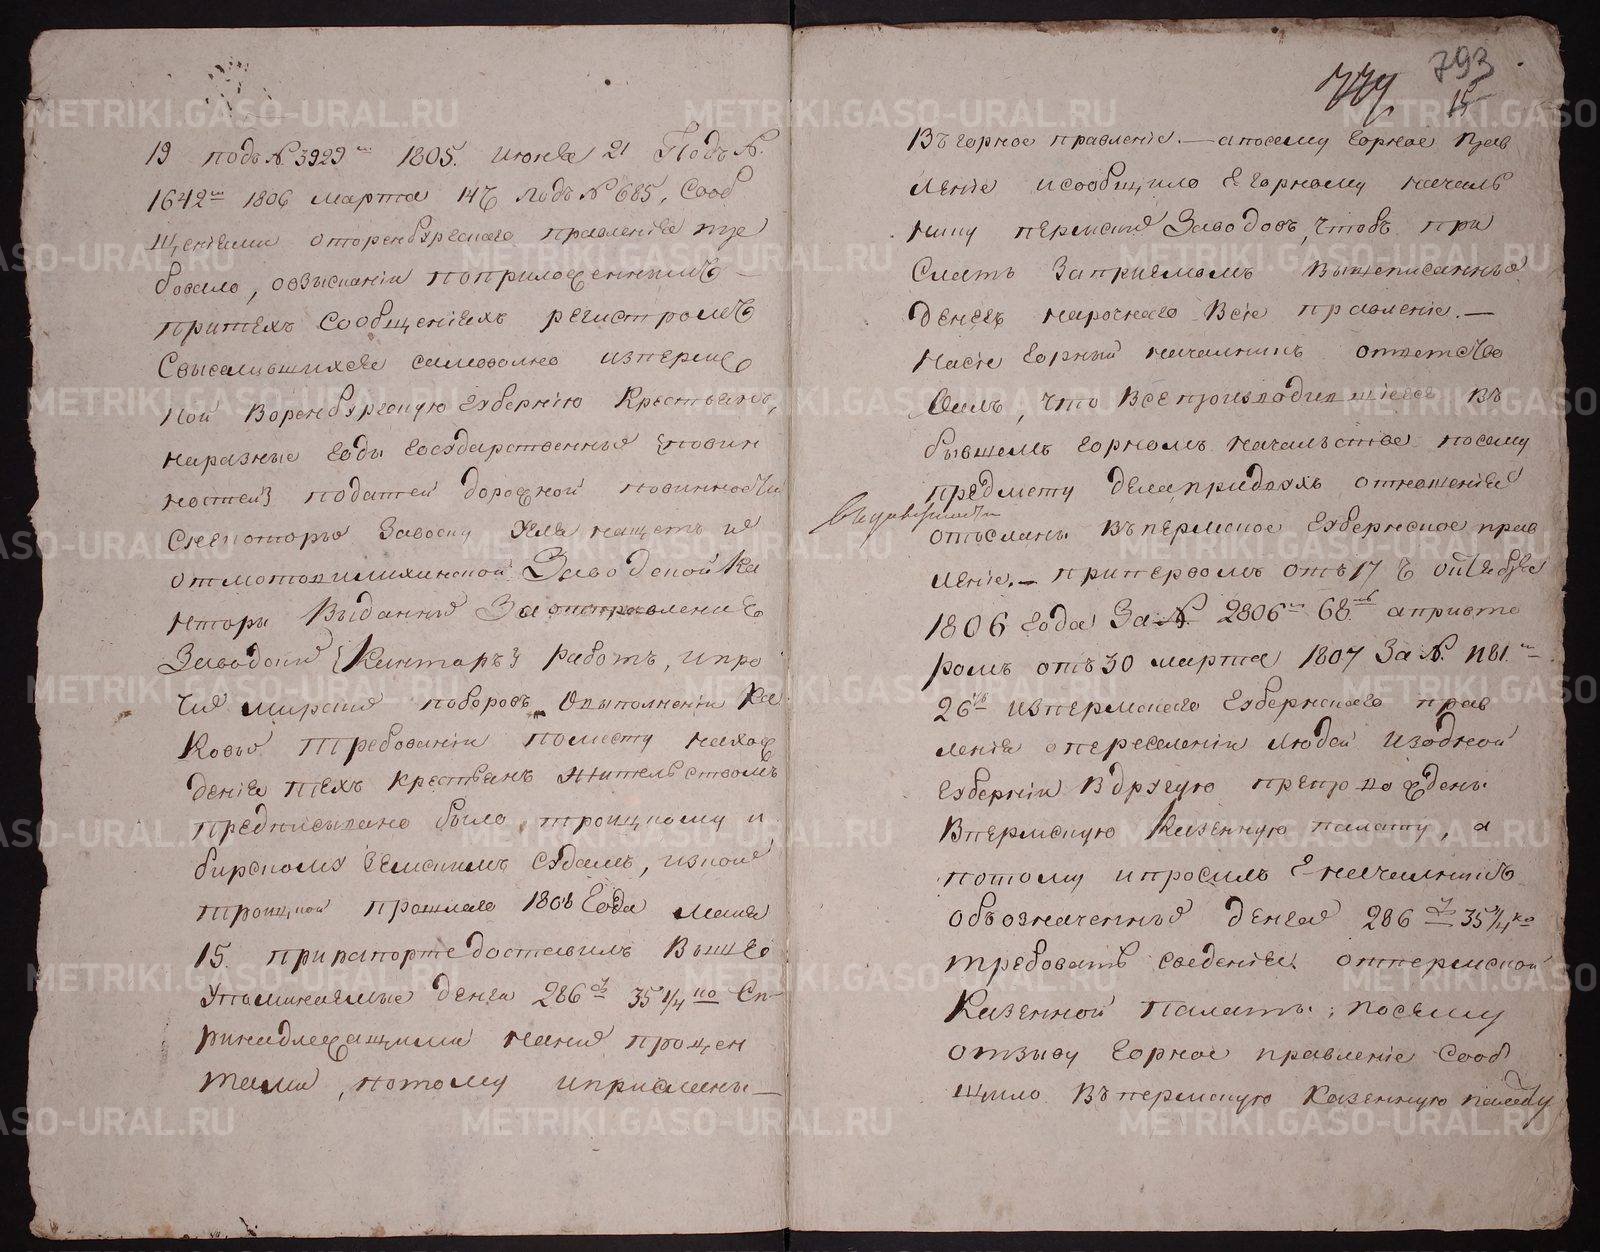 19 подъ № 3929м 1805. июня 21 Подъ №.
1642м 1806 марта 14 Подъ № 685, Сооб
щениями оторенбургскаго правления тре
бовало, овзыскании поприложеннымъ
притехъ сообщенияхъ регистромъ
Свыселившихся самовольно изперм
ской Воренбургскую губернию Крестьянъ,
наразные годы государственныя {повин
ностей} податей дорожной повинности
Снекоторыхъ
отмотовилихинской Заводской Ка
нторы Выданныя За отправление
Заводскихъ {Кантаръ} работъ, ипро
чия мирския поборовъ. Овыполнении Ка
ковыхъ Требовании поместу нахож
дения техъ крестьянъ жительствомъ
предписывано было троицкому и
бирскому земскимъ судамъ, изкоихъ
троицкой прошлаго 1806 Года маия
15. прирапорте доставилъ Выше
упоминаемые денги 286 р 35 1/4 ко Сп
ринадлежащими наних процен
тами, потому иприсланы
793
779
15
Въ горное правление. — апосему горное прав
ление исообщило Г горному началь
нику пермскихъ Заводовъ, чтобъ при
слать Заприемомъ Вышеписанныхъ
денегъ нарочнаго Всие правление. —
Насие горный началникъ ответство
валъ, что Все производившиеся въ
бывшемъ горномъ начальстве посему
предмету дела придвухъ отношенияхъ
отосланы въ пермское губернское прав
ление. — припервомъ отъ 17 октября
1806 года За №. 2806м 68. апривто
ромъ отъ 30 марта 1807 За №. 1181.м
26 изпермскаго губернскаго прав
ления опереселении людей изодной
губернии Вдругую препровождены
Впермскую Казенную палату, а
потому ипросилъ Г началникъ
объозначенныхъ денгахъ 286 р 35 1/4 ко
требовать сведения отпермской
Казенной Палаты; посему
отзыву горное правление Сооб
щило Въ пермскую Казенную палату